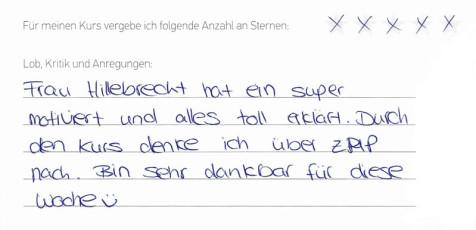 Für meinen Kurs vergebe ich folgende Anzahl an Sternen: X X X X X
Lob, Kritik und Anregungen:
Frau Hillebrecht hat ein super
motiviert und alles toll erklärt. Durch
den Kurs denke ich über ZPP
nach. Bin sehr dankbar für diese
Woche ü